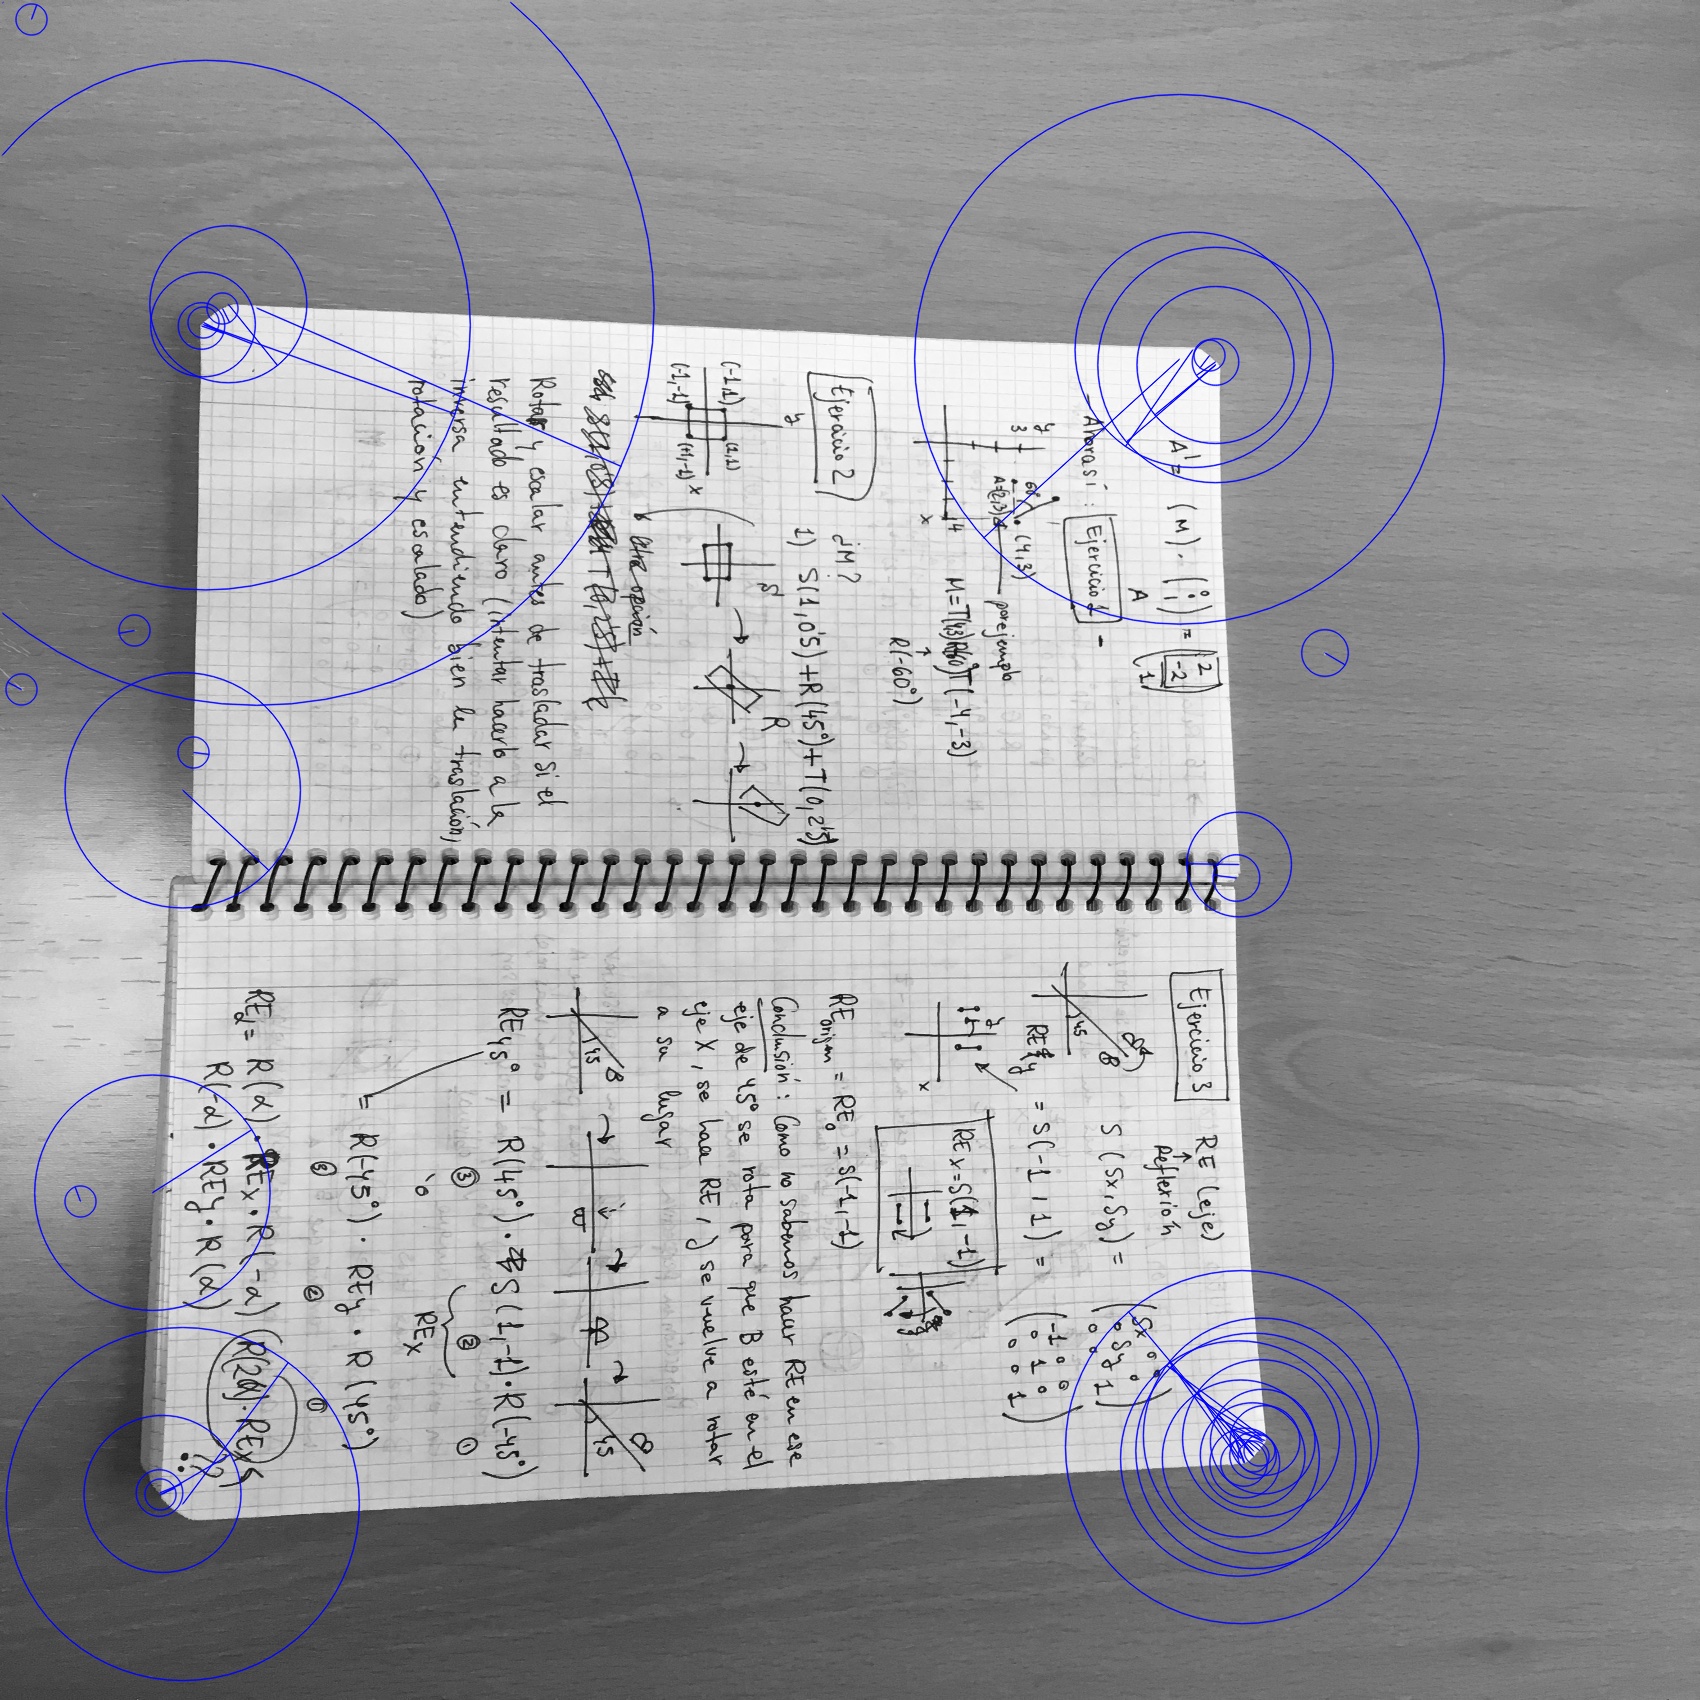 A' = (M) · (0 0 1) = (2 -2 1)
A
- Ahora sí: Ejercicio 1 -
y
3
60°
A=(2,3)
(4,3)
4
x
por ejemplo
M=T(4,3)R(60°)T(-4,-3)
R(-60°)
Ejercicio 2
¿M?
1) S(1,0'5)+R(45°)+T(0,2'5)
y
(-1,1)
(1,1)
(-1,-1)
(1,-1)
x
S
R
Otra opción
Rotar y escalar antes de trasladar si el
resultado es claro (intentar hacerlo a la
inversa entendiendo bien la traslación,
rotación y escalado)
Ejercicio 3
RE (eje)
Reflexión
45
B
S(Sx,Sy) =
(Sx 0 0
0 Sy 0
0 0 1)
REy = S(-1,1) =
(-1 0 0
0 1 0
0 0 1)
y
x
REx=S(1,-1)
REorigen = REo = S(-1,-1)
Conclusión: Como no sabemos hacer RE en ese
eje de 45° se rota para que B esté en el
eje X, se hace RE, y se vuelve a rotar
a su lugar
45
B
B
45
B
RE45° = R(45°) · S(1,-1) · R(-45°)
③ ② ①
REx
ó
= R(-45°) · REy · R(45°)
③ ② ①
REα = R(α) · REx · R(-α) (R(2α) · REx
R(-α) · REy · R(α)
¿?